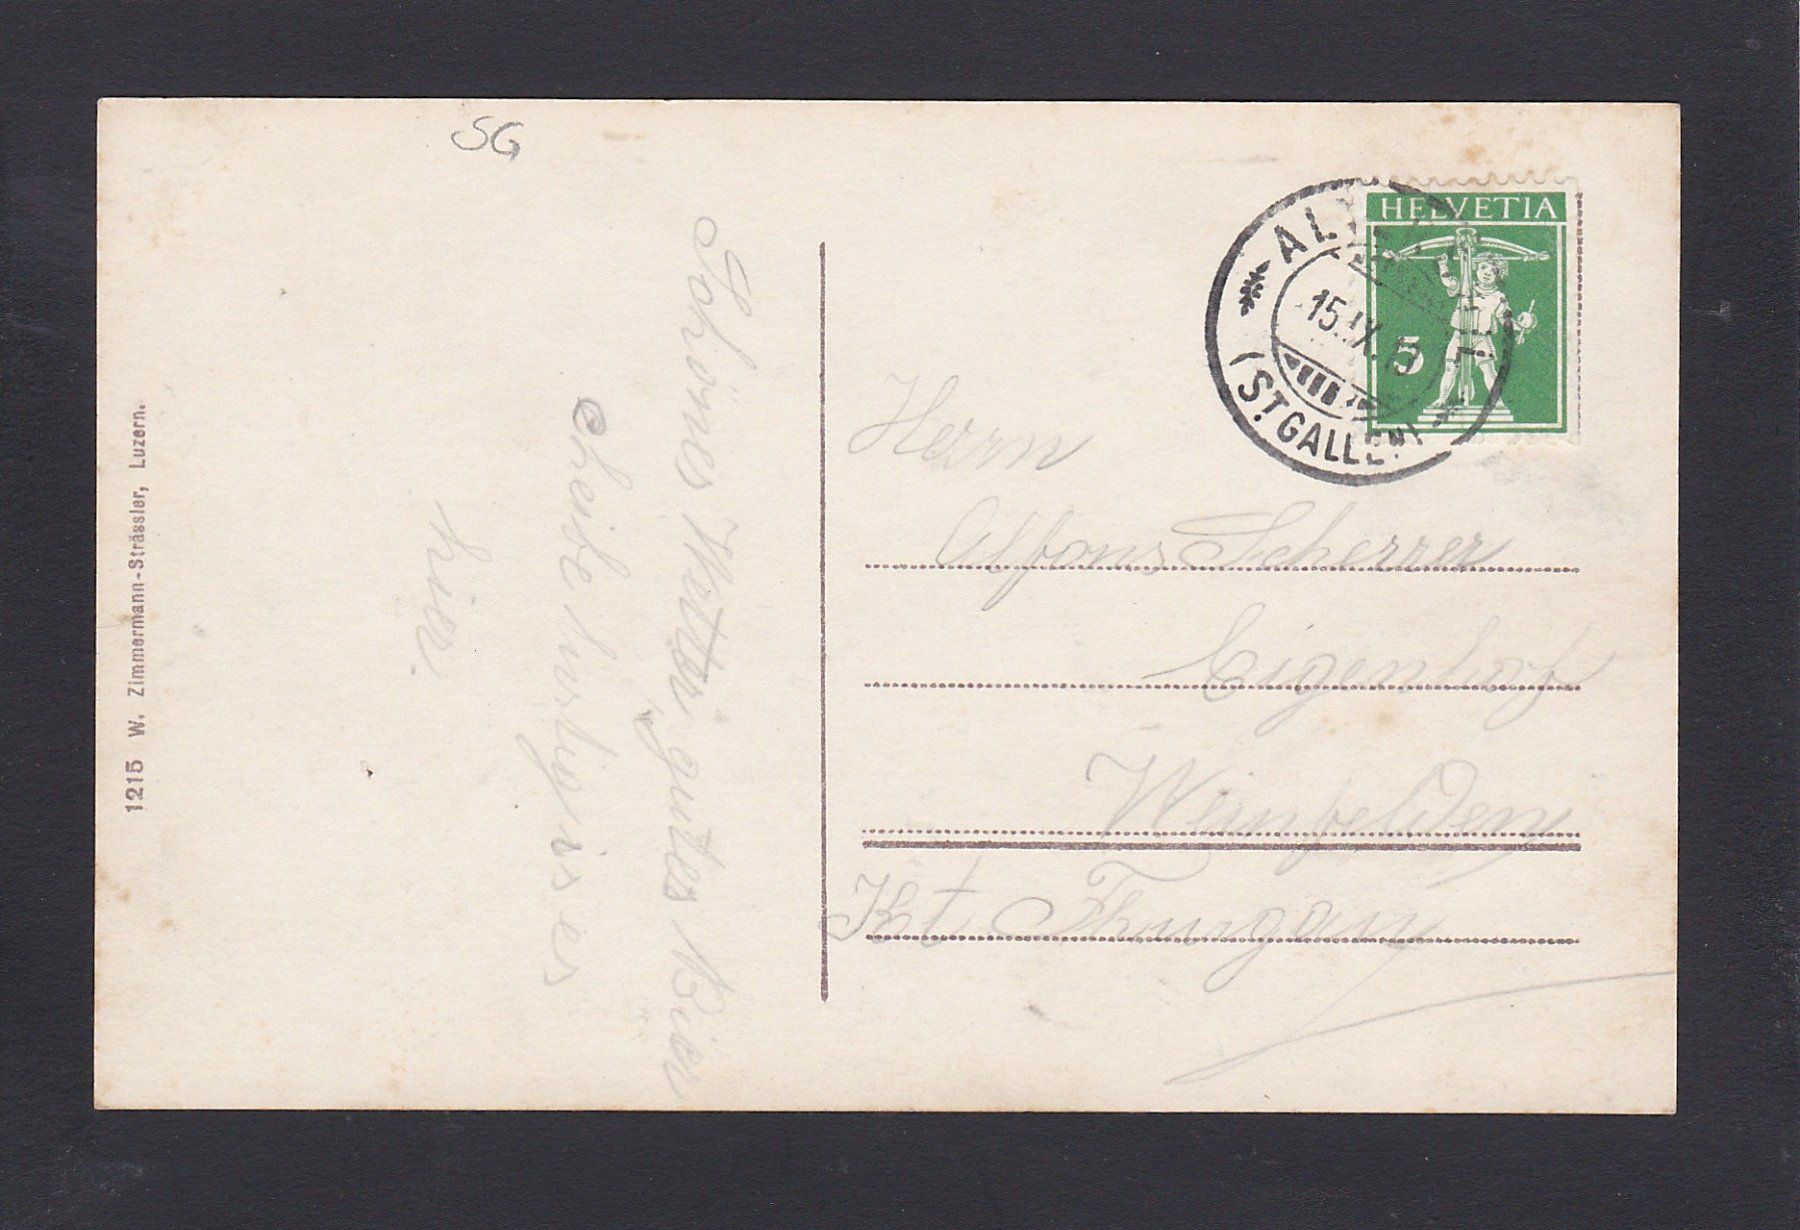 SG
1215 W. Zimmermann-Strässler, Luzern.
Schönes Wetter, gutes Bier
cheibe lustig is es
hier.
HELVETIA
5
15.IX.
(ST. GALLEN)
Herrn
Alfons Scherrer
Eigenhof
Weinfelden
Kt Thurgau